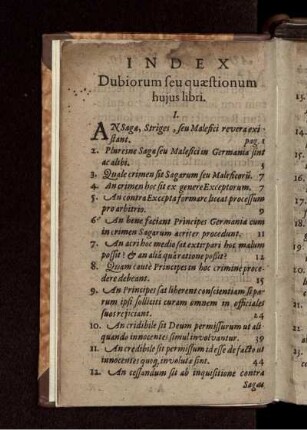 INDEX
Dubiorum seu quæstionum
hujus libri.
I.
AN Sagæ, Striges, seu Malefici revera exi-
stant. pag. 1
2. Plures ne Sagæ seu Malefici in Germania sint
ac alibi. 2
3. Quale crimen sit Sagarum seu Maleficorũ. 7
4. An crimen hoc sit ex genere Exceptorum. 7
5. An contra Excepta formare liceat processum
pro arbitrio. 9
6. An bene faciant Principes Germania cum
in crimen Sagarum acriter procedunt. 11
7. An acri hoc medio sat extirpari hoc malum
possit? & an alia quâ ratione possit? 12
8. Quàm cautè Principes in hoc crimine proce-
dere debeant. 15
9. An Principes sat liberent conscientiam si pa-
rum ipsi solliciti curam omnem in officiales
suos rejiciant. 24
10. An credibile sit Deum permissurum ut ali
quando innocentes simul involvantur. 39
11. An credibile sit permissum id esse de facto ut
innocentes quoq, involutæ sint. 44
12. An cessandum sit ab inquisitione contra
Sagas